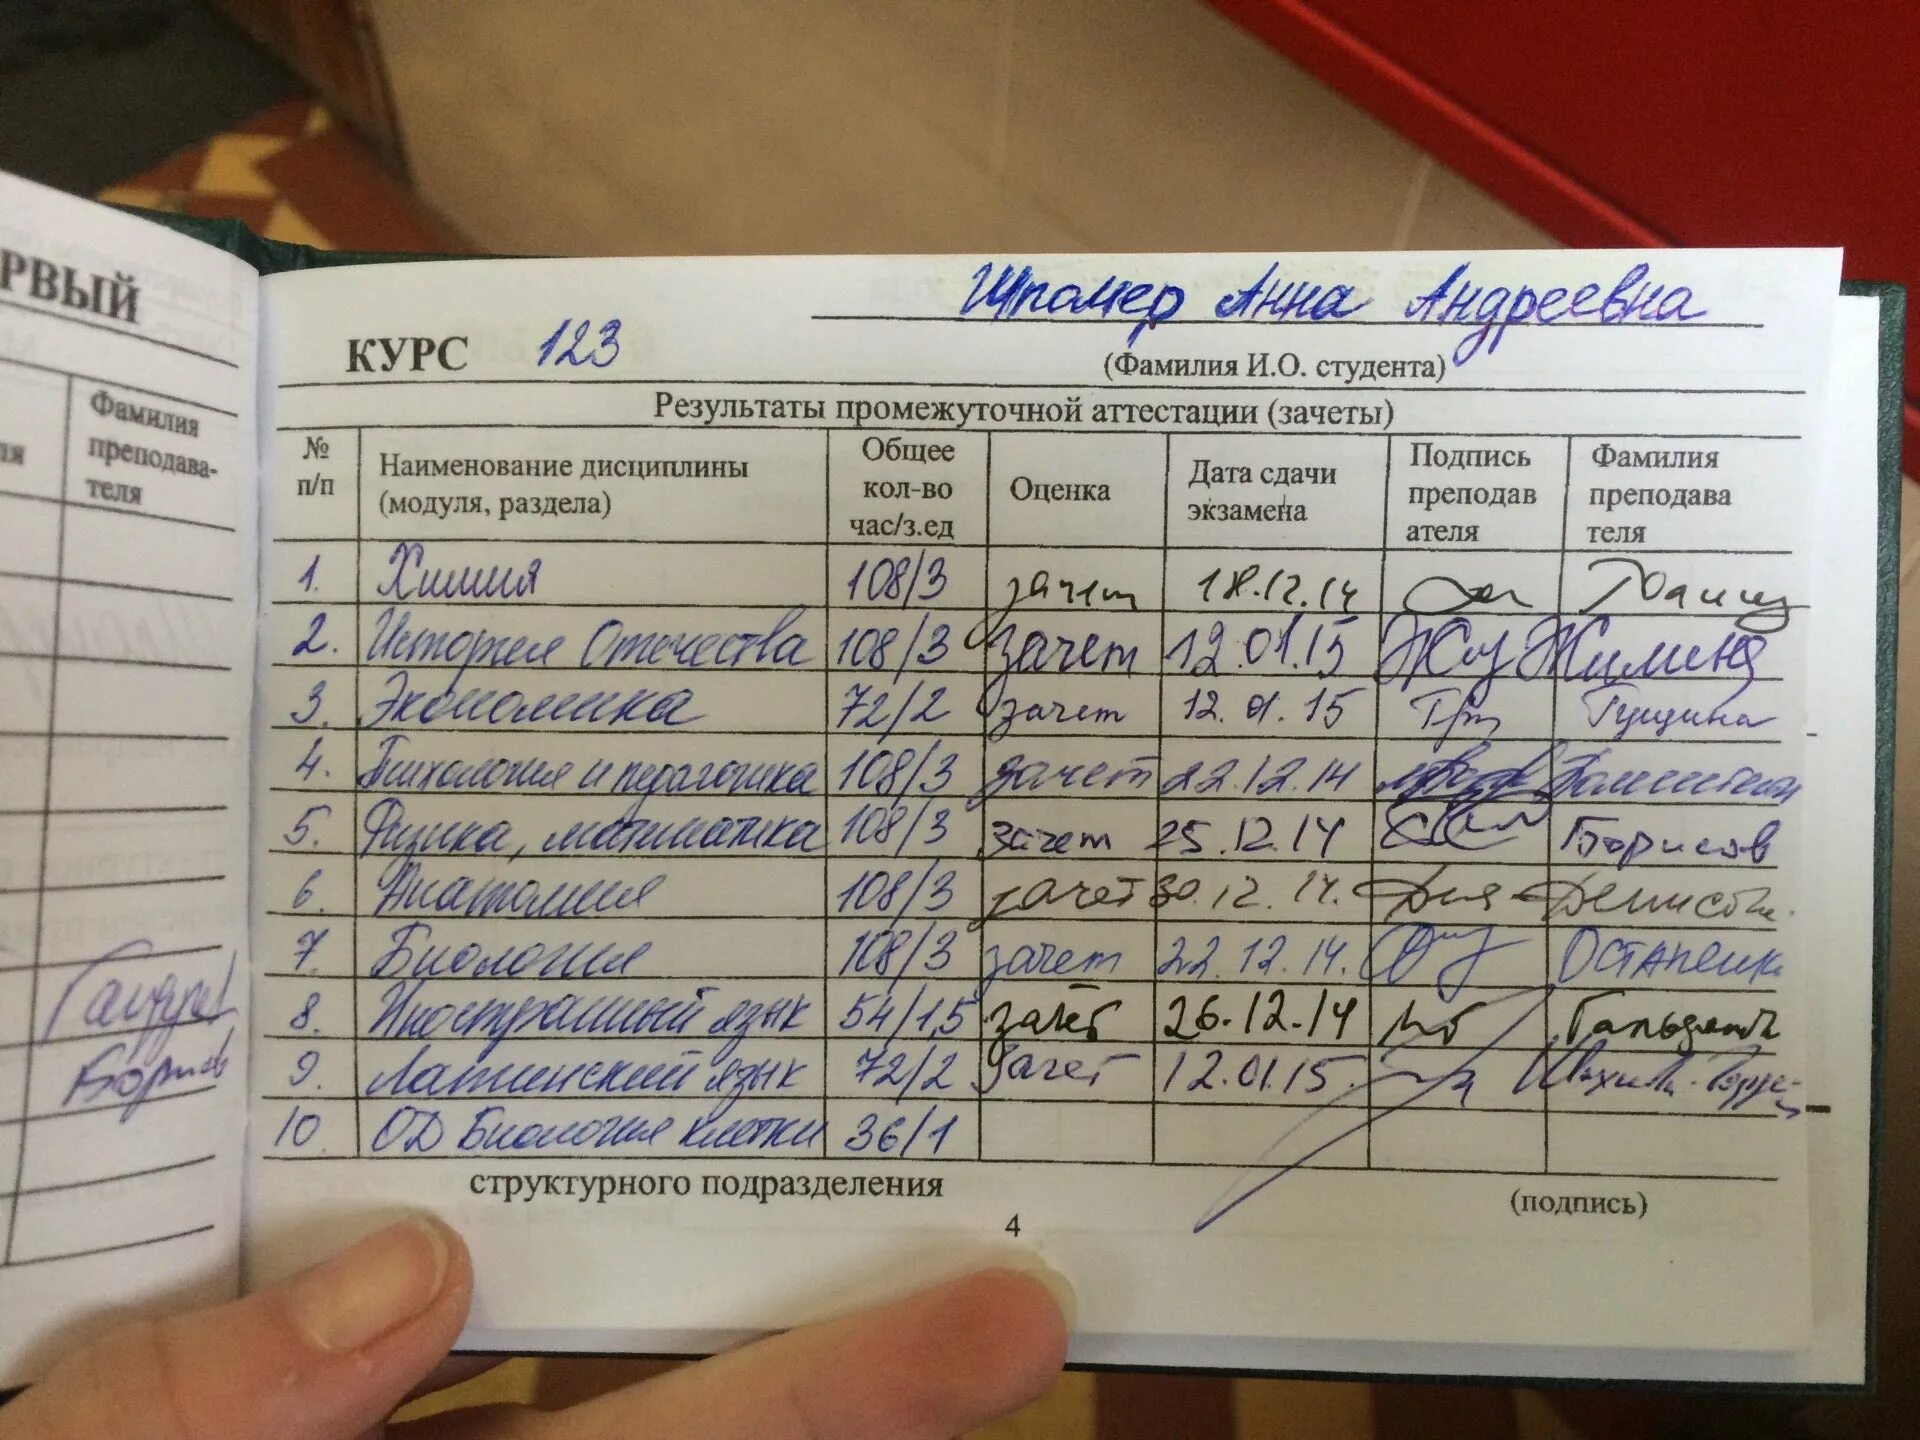 РВЫЙ
Фамилия
преподава-
теля
Борисов
Шпомер Анна Андреевна
КУРС 123
(Фамилия И.О. студента)
Результаты промежуточной аттестации (зачеты)
№ п/п Наименование дисциплины (модуля, раздела) Общее кол-во час/з.ед Оценка Дата сдачи экзамена Подпись преподав ателя Фамилия преподава теля
1. Химия 108/3 зачет 18.12.14
2. История Отечества 108/3 зачет 12.01.15
3. Экономика 72/2 зачет 12.01.15 Гущина
4. Психология и педагогика 108/3 зачет 22.12.14
5. Физика, математика 108/3 зачет 25.12.14 Борисов
6. Анатомия 108/3 зачет 30.12.14.
7. Биология 108/3 зачет 22.12.14. Остапенк
8. Иностранный язык 54/1,5 зачёт 26.12.14
9. Латинский язык 72/2 Зачет 12.01.15.
10 ОД Биология клетки 36/1
структурного подразделения (подпись)
4